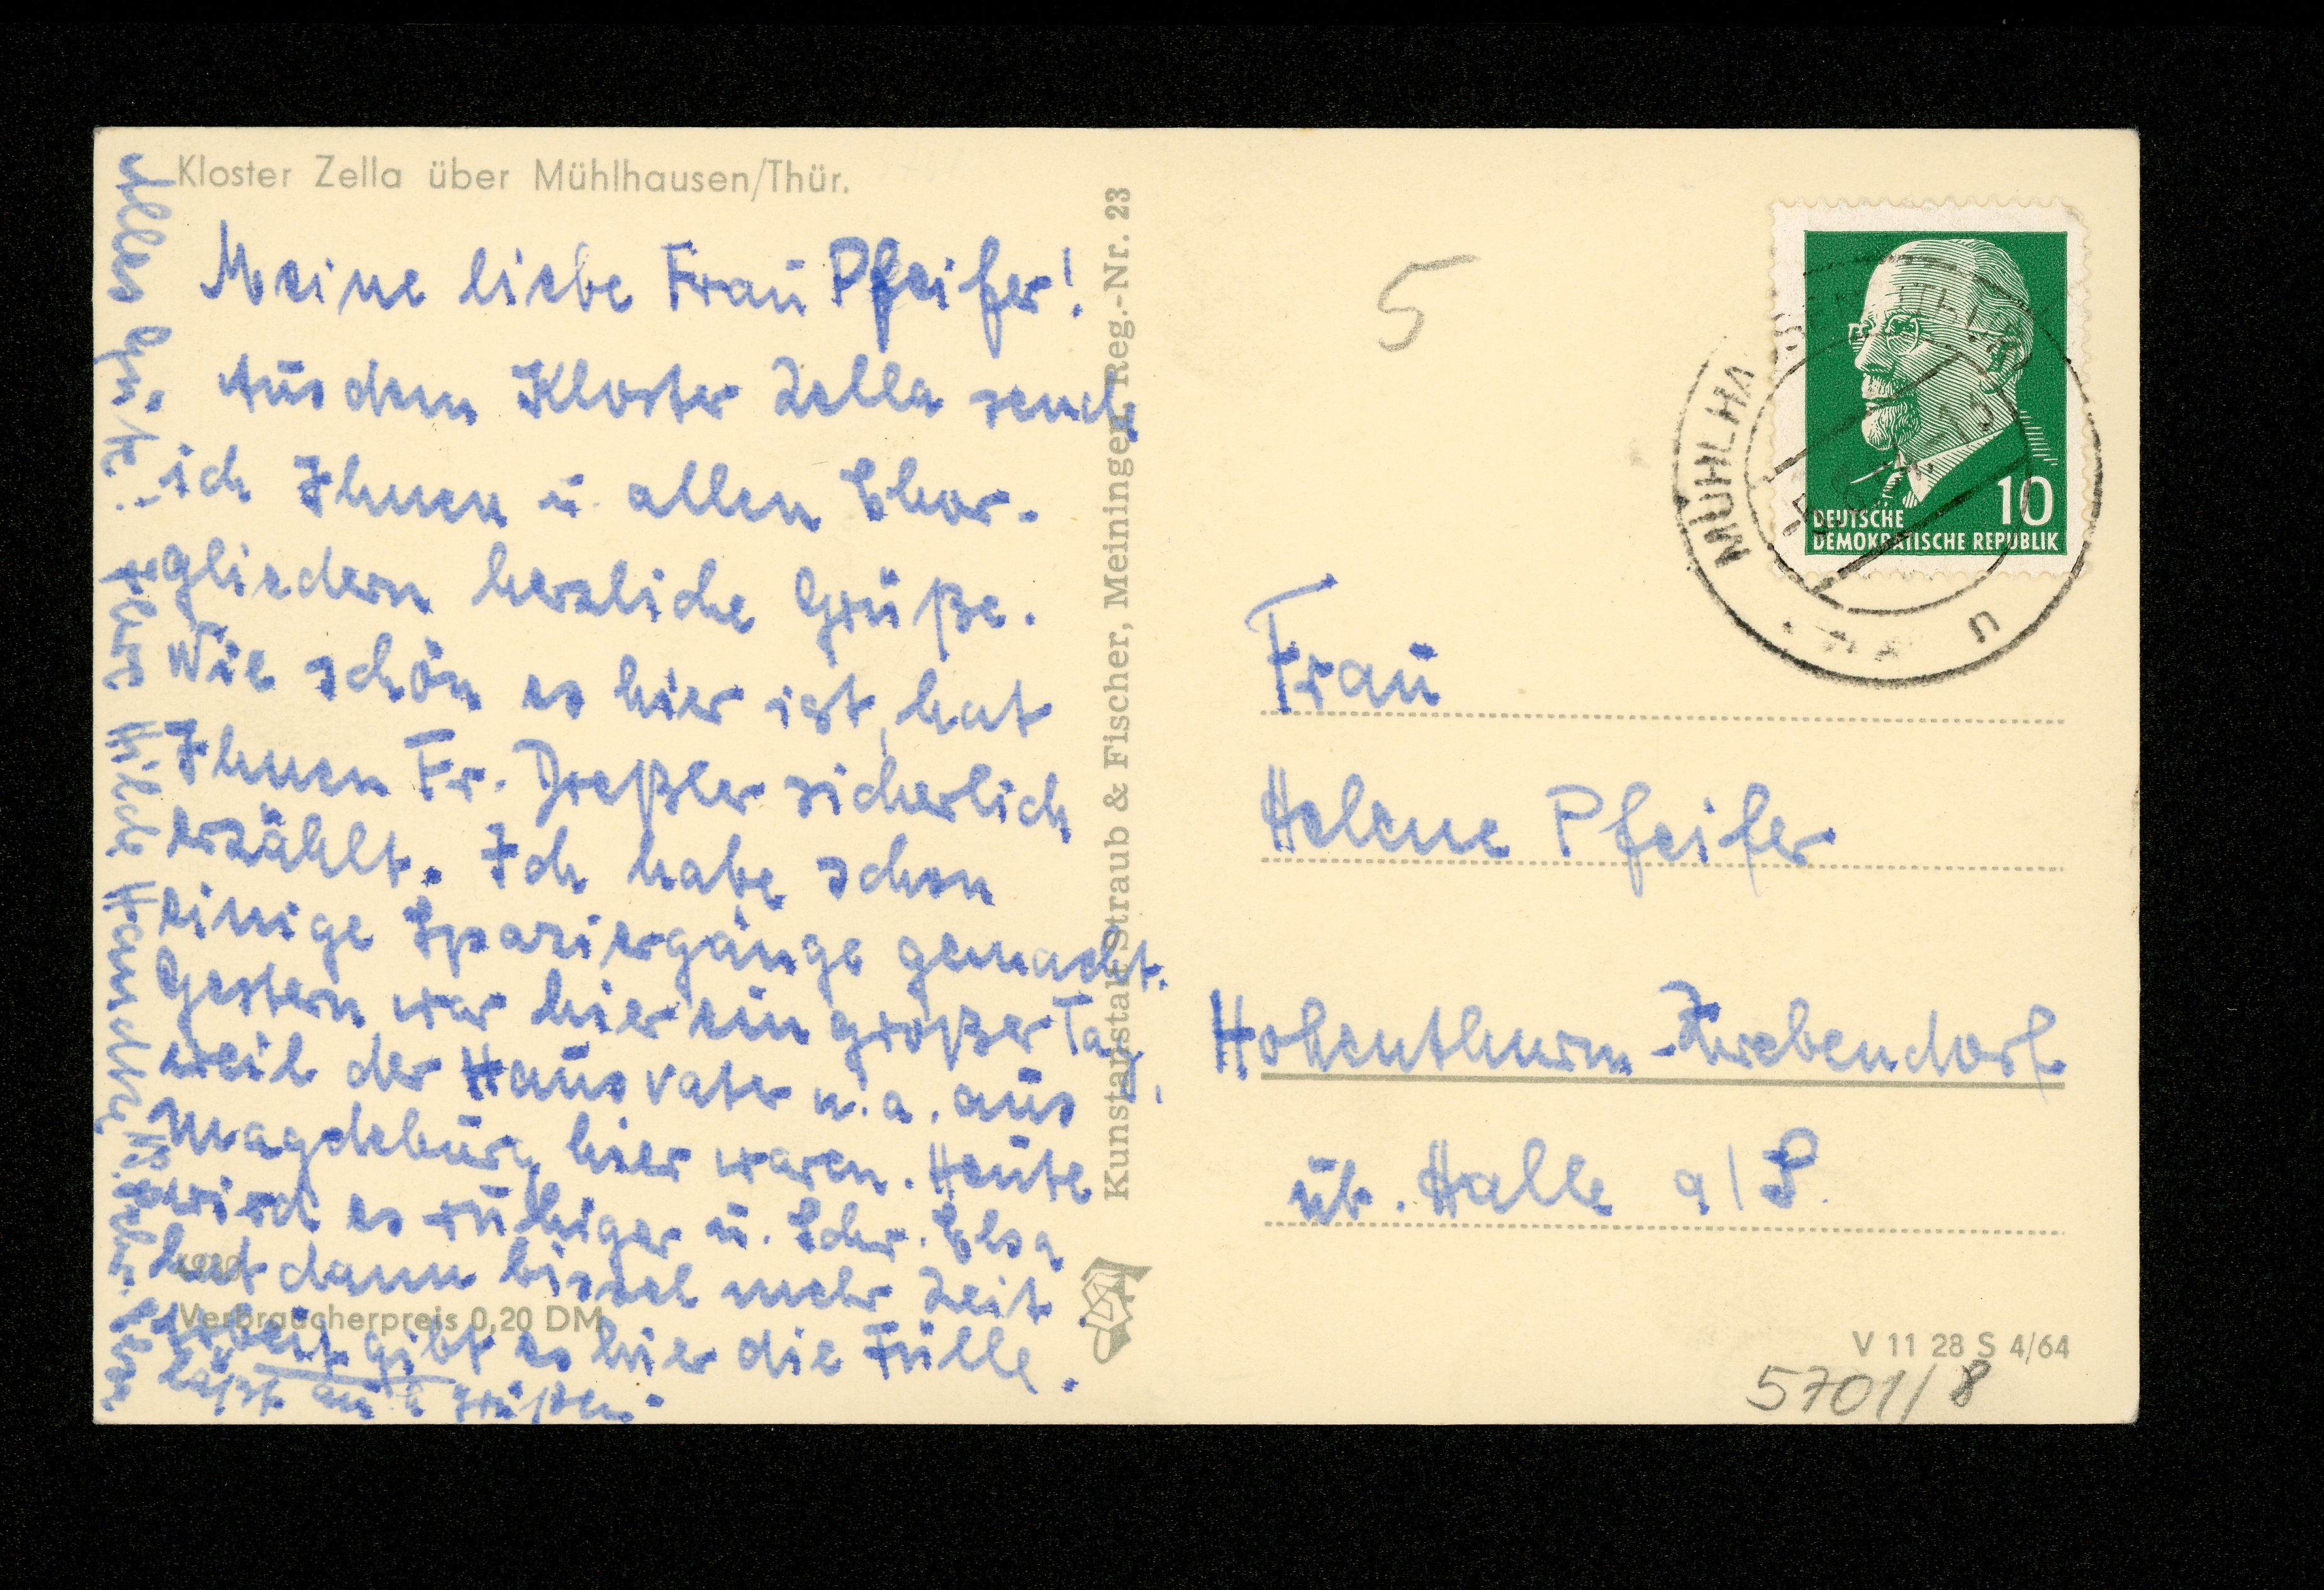 Kloster Zella über Mühlhausen/Thür.
Meine liebe Frau Pfeifer!
Aus dem Kloster Zella send
ich Ihnen u. allen Chor-
gliedern herzliche Grüße.
Wie schön es hier ist, hat
Ihnen Fr. Dreßler sicherlich
erzählt. Ich habe schon
einige Spaziergänge gemacht.
Gestern war hier ein großer Tag,
weil der Hausvater u. a. aus
Magdeburg hier waren. Heute
wird es ruhiger u. Schw. Elsa
hat dann bissel mehr Zeit
Arbeit gibt es hier die Fülle.
läßt auch grüßen.
Alles Gute! Ihre Hilde
Verbraucherpreis 0,20 DM
Kunstanstalt Straub & Fischer, Meiningen, Reg.-Nr. 23
5
MÜHLHA
10
DEUTSCHE
DEMOKRATISCHE REPUBLIK
Frau
Helene Pfeifer
Hohenthurm-Zwebendorf
üb. Halle a/S.
V 11 28 S 4/64
5701/8